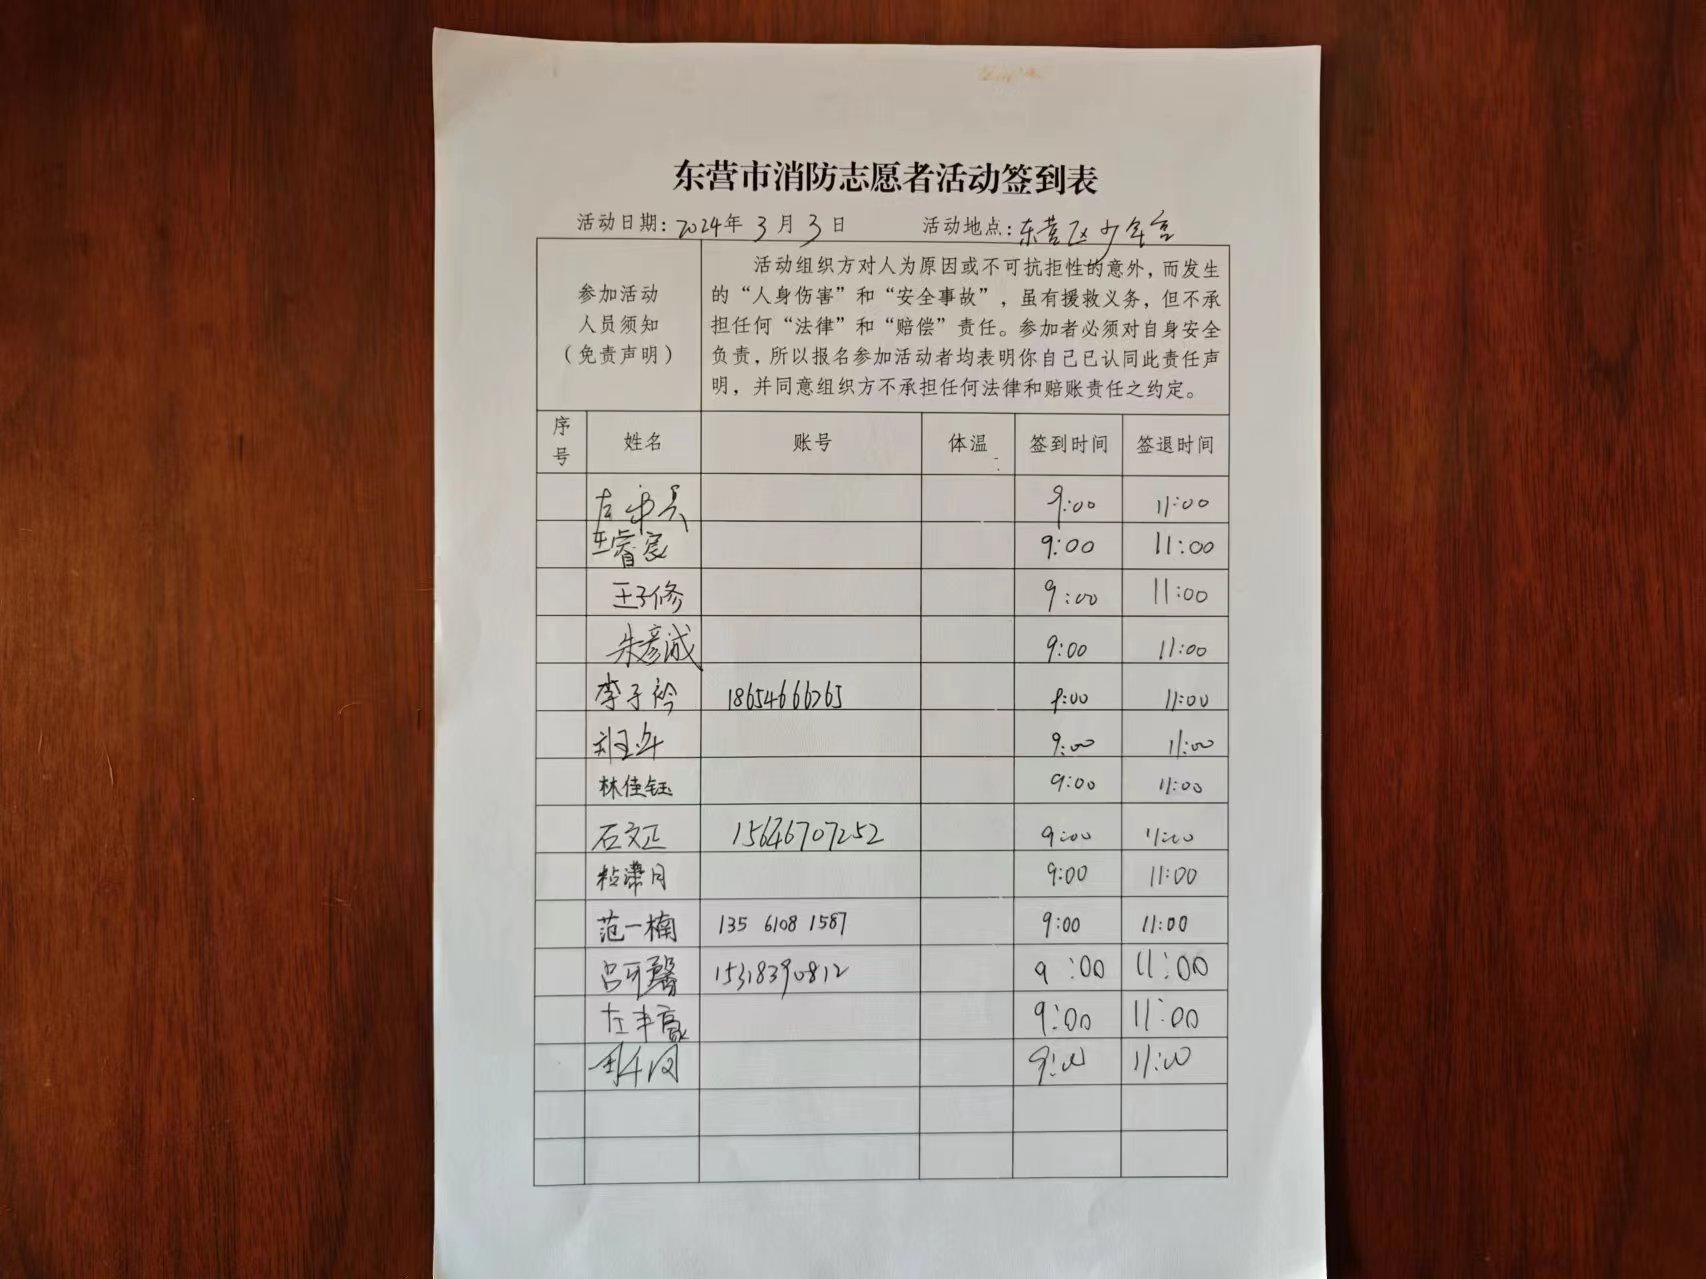 东营市消防志愿者活动签到表
活动日期：2024年 3月 3日 活动地点：东营区少年宫
参加活动
人员须知
（免责声明）
活动组织方对人为原因或不可抗拒性的意外，而发生
的“人身伤害”和“安全事故”，虽有援救义务，但不承
担任何“法律”和“赔偿”责任。参加者必须对自身安全
负责，所以报名参加活动者均表明你自己已认同此责任声
明，并同意组织方不承担任何法律和赔账责任之约定。
序号 姓名 账号 体温 签到时间 签退时间
9:00 11:00
王睿宸 9:00 11:00
王子修 9:00 11:00
朱彦诚 9:00 11:00
李子衿 18654666765 9:00 11:00
9:00 11:00
林佳钰 9:00 11:00
石文正 15646707252 9:00 11:00
粘潇月 9:00 11:00
范一楠 135 6108 1587 9:00 11:00
吕牙馨 15318390812 9:00 11:00
左丰豪 9:00 11:00
9:00 11:00